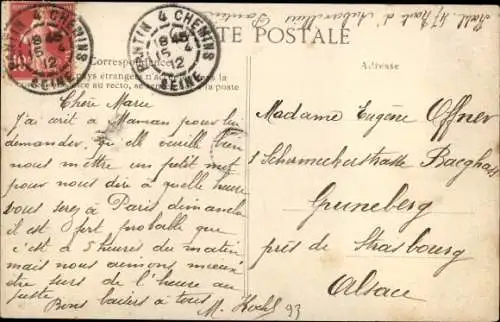 PANTIN 4 CHEMINS
18 45
15 4
12
SEINE
PANTIN 4 CHEMINS
18 45
15 4
12
SEINE
10
TE POSTALE
Correspondance
pays étrangers n'acc
au recto, se la poste
Adresse
Chère Marie
J'ai écrit à Maman pour lui
demander, qu'elle veuille bien
nous mettre un petit mot
pour nous dire à quelle heure
vous serez à Paris dimanche
il est fort probable que
c'est à 5 heures du matin
mais nous aimons mieux
être sûrs de l'heure au
juste.
Bons baisers à tous
M. Hohl 93
Madame Eugène Offner
Gruneberg
près de Strasbourg
Alsace